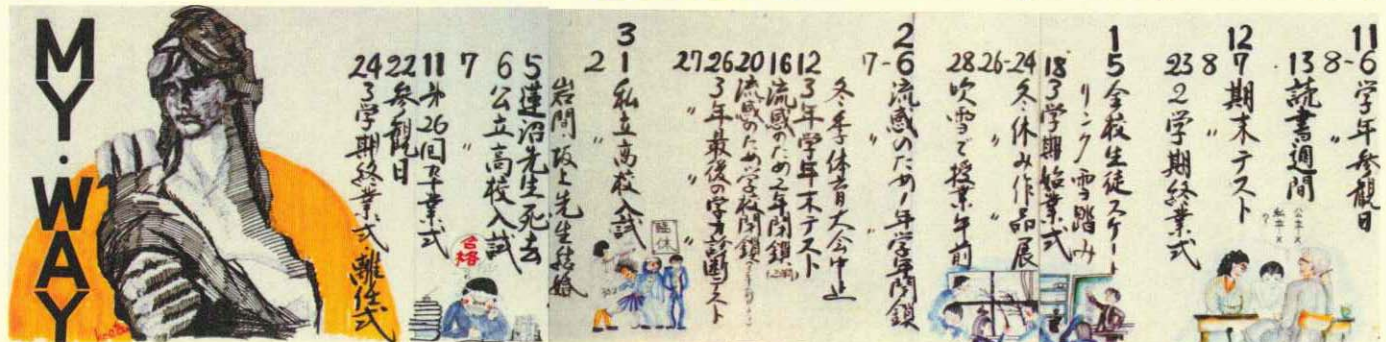 11
6 学年参観日
-
8 〃
13 読書週間
12
7 期末テスト
8 〃
23 2学期終業式
公立-×
私立-×
?
1
5 全校生徒スケート
リンク雪踏み
18 3学期始業式
24 冬休み作品展
-
26 〃
28 吹雪で授業午前
2
6 流感のため1年学年閉鎖
-
7 〃
冬季体育大会中止
12 3年学年末テスト
16 流感のため2年閉鎖
20 流感のため学校閉鎖
26 3年最後の学力診断テスト
27 〃 〃
臨休
3
1 私立高校入試
2 〃
岩間・坂上先生結婚
5 蓮沼先生死去
6 公立高校入試
7 〃
合格
11 第26回卒業式
22 参観日
24 3学期終業式・離任式
MY・WAY